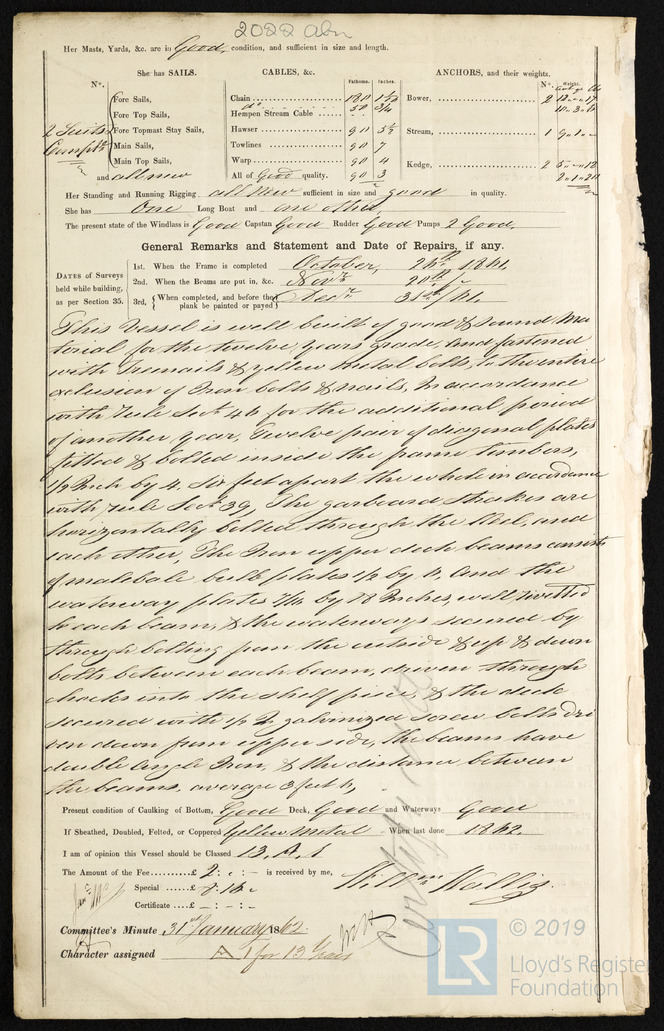 2022 abn
Her Masts, Yards, &c. are in Good condition, and sufficient in size and length.
She has SAILS. CABLES, &c. ANCHORS, and their weights.
N°. Fathoms. Inches. N°. Weight.
Fore Sails, Chain 180 Bower, 2
Fore Top Sails, Hempen Stream Cable 50 3/4
2 Suits Fore Topmast Stay Sails, Hawser 90 5½ Stream, 1 9,1,,
Compte Main Sails, Towlines 90 7
Main Top Sails, Warp 90 4 Kedge, 2
and all new All of Good quality. 90 3
Her Standing and Running Rigging all New sufficient in size and good in quality.
She has One Long Boat and one other
The present state of the Windlass is Good Capstan Good Rudder Good Pumps 2 Good.
General Remarks and Statement and Date of Repairs, if any.
DATES of Surveys held while building, as per Section 35.
1st. When the Frame is completed October, 1861.
2nd. When the Beams are put in, &c. Novr 20th
3rd, {When completed, and before the plank be painted or payed} Decr 31st /61.
This Vessel is well built of good & sound Ma
terial for the twelve years grade, and fastened
with Treenails & yellow metal bolts, to the entire
exclusion of Iron bolts & nails, In accordance
with Rule Sect 46 for the additional period
of another year, Twelve pair of diagonal plates
fitted & bolted inside the frame timbers,
1/2 Inch by 4. Six feet apart the whole in accordance
with rule Sect 39, The garboard strakes are
horizontally bolted through the Keel, and
each other, The Iron upper deck beams consists
of maleable bulb plates 1/2 by 6, and the
waterway plates 7/16 by 18 Inches, well rivetted
to each beam, & the waterways secured by
through bolting from the outside & up & down
bolts between each beam, driven through
chocks into the shelf piece, & the deck
secured with 1/2 In galvanized screw bolts dri
ven down from upper side, the beams have
double Angle Iron, & the distance between
the beams, average 3 feet 6,
Present condition of Caulking of Bottom, Good Deck, Good and Waterways Good
If Sheathed, Doubled, Felted, or Coppered Yellow Metal When last done 1862.
I am of opinion this Vessel should be Classed 13. A. 1
The Amount of the Fee £ 2 : " : - is received by me,
Special £ 8.16
Certificate £ - : - : -
Willm Wallis
Committee's Minute 31st January 1862
Character assigned A 1 for 13 Years
© 2019
LR
Lloyd's Register
Foundation